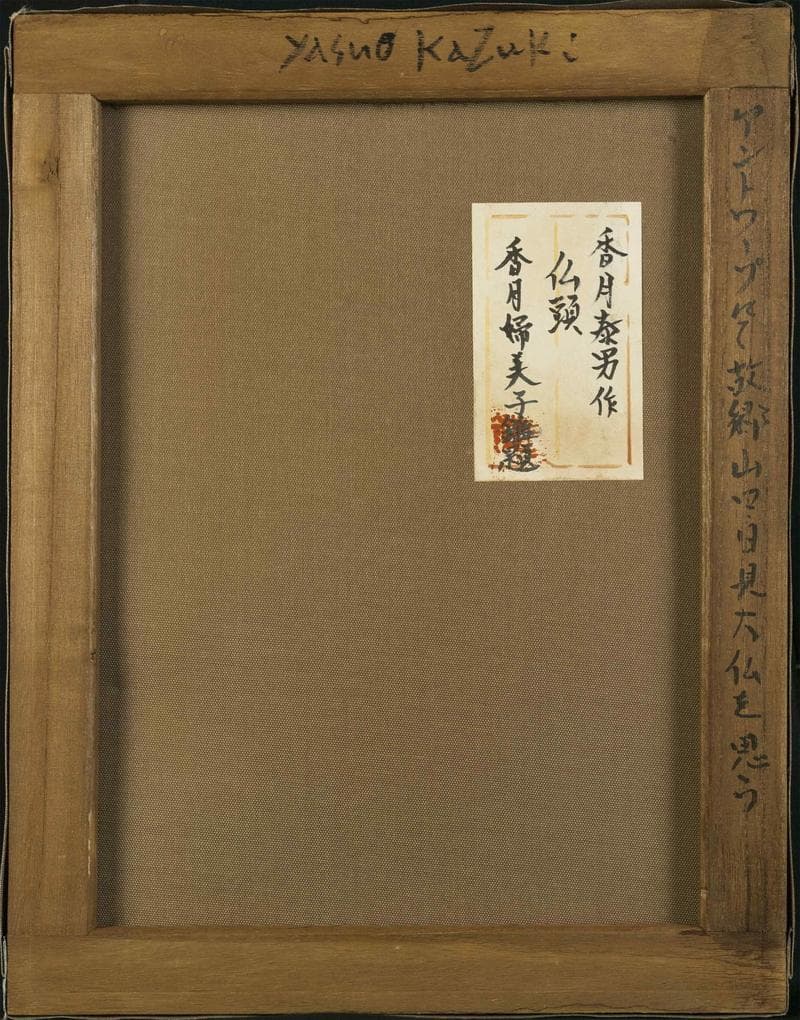 Yasuo Kazuki
アントワープにて故郷山口日見大仏を思う
香月泰男作
仏頭
香月婦美子鑑題